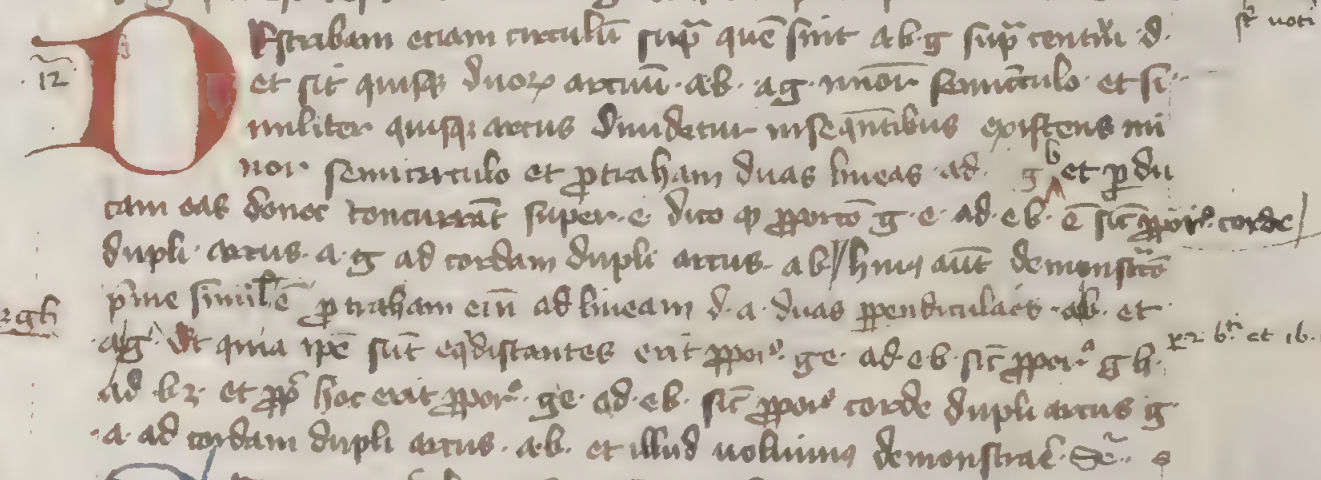 DEstrabam etiam circulū sup̄ quē sint a·b·g sup̄ centrū ·d·
et sit quisq; duorꝝ arcuū ·a·b· a·g· minor semic̄culo et si
militer quisq; arcus diuidatur inseqūntibus existens mi
nor semicirculo et ꝓtraham duas lineas ·ad· g b et ꝑdu
cam eas donec concurrāt super ·e· dico ꝙ ꝓporcō g·e· ad ·e·b· ē sic̄ ꝓpor̄ corde
dupli arcus ·a·g ad cordam dupli arcus ·a·b // huiꝰ aūt demonstrō
p̄me simil' ē ꝓtraham eni̅ ad lineam ·d·a· duas ꝑpendiculares ·ab· et
·ag· Et quia ip̄e sūt eq̄distantes erit ꝓpor̄ ·ge· ad ·eb· sic̄ ꝓpor̄ gh·
ad ·bz· et ꝓp̄ hoc erit ꝓpor̄ ·ge· ad ·eb· sic̄ ꝓpor̄ corde dupli arcus g·
·a· ad cordam dupli arcus ·a·b· et illud uoluimꝰ demonstrar̄
12
zgh